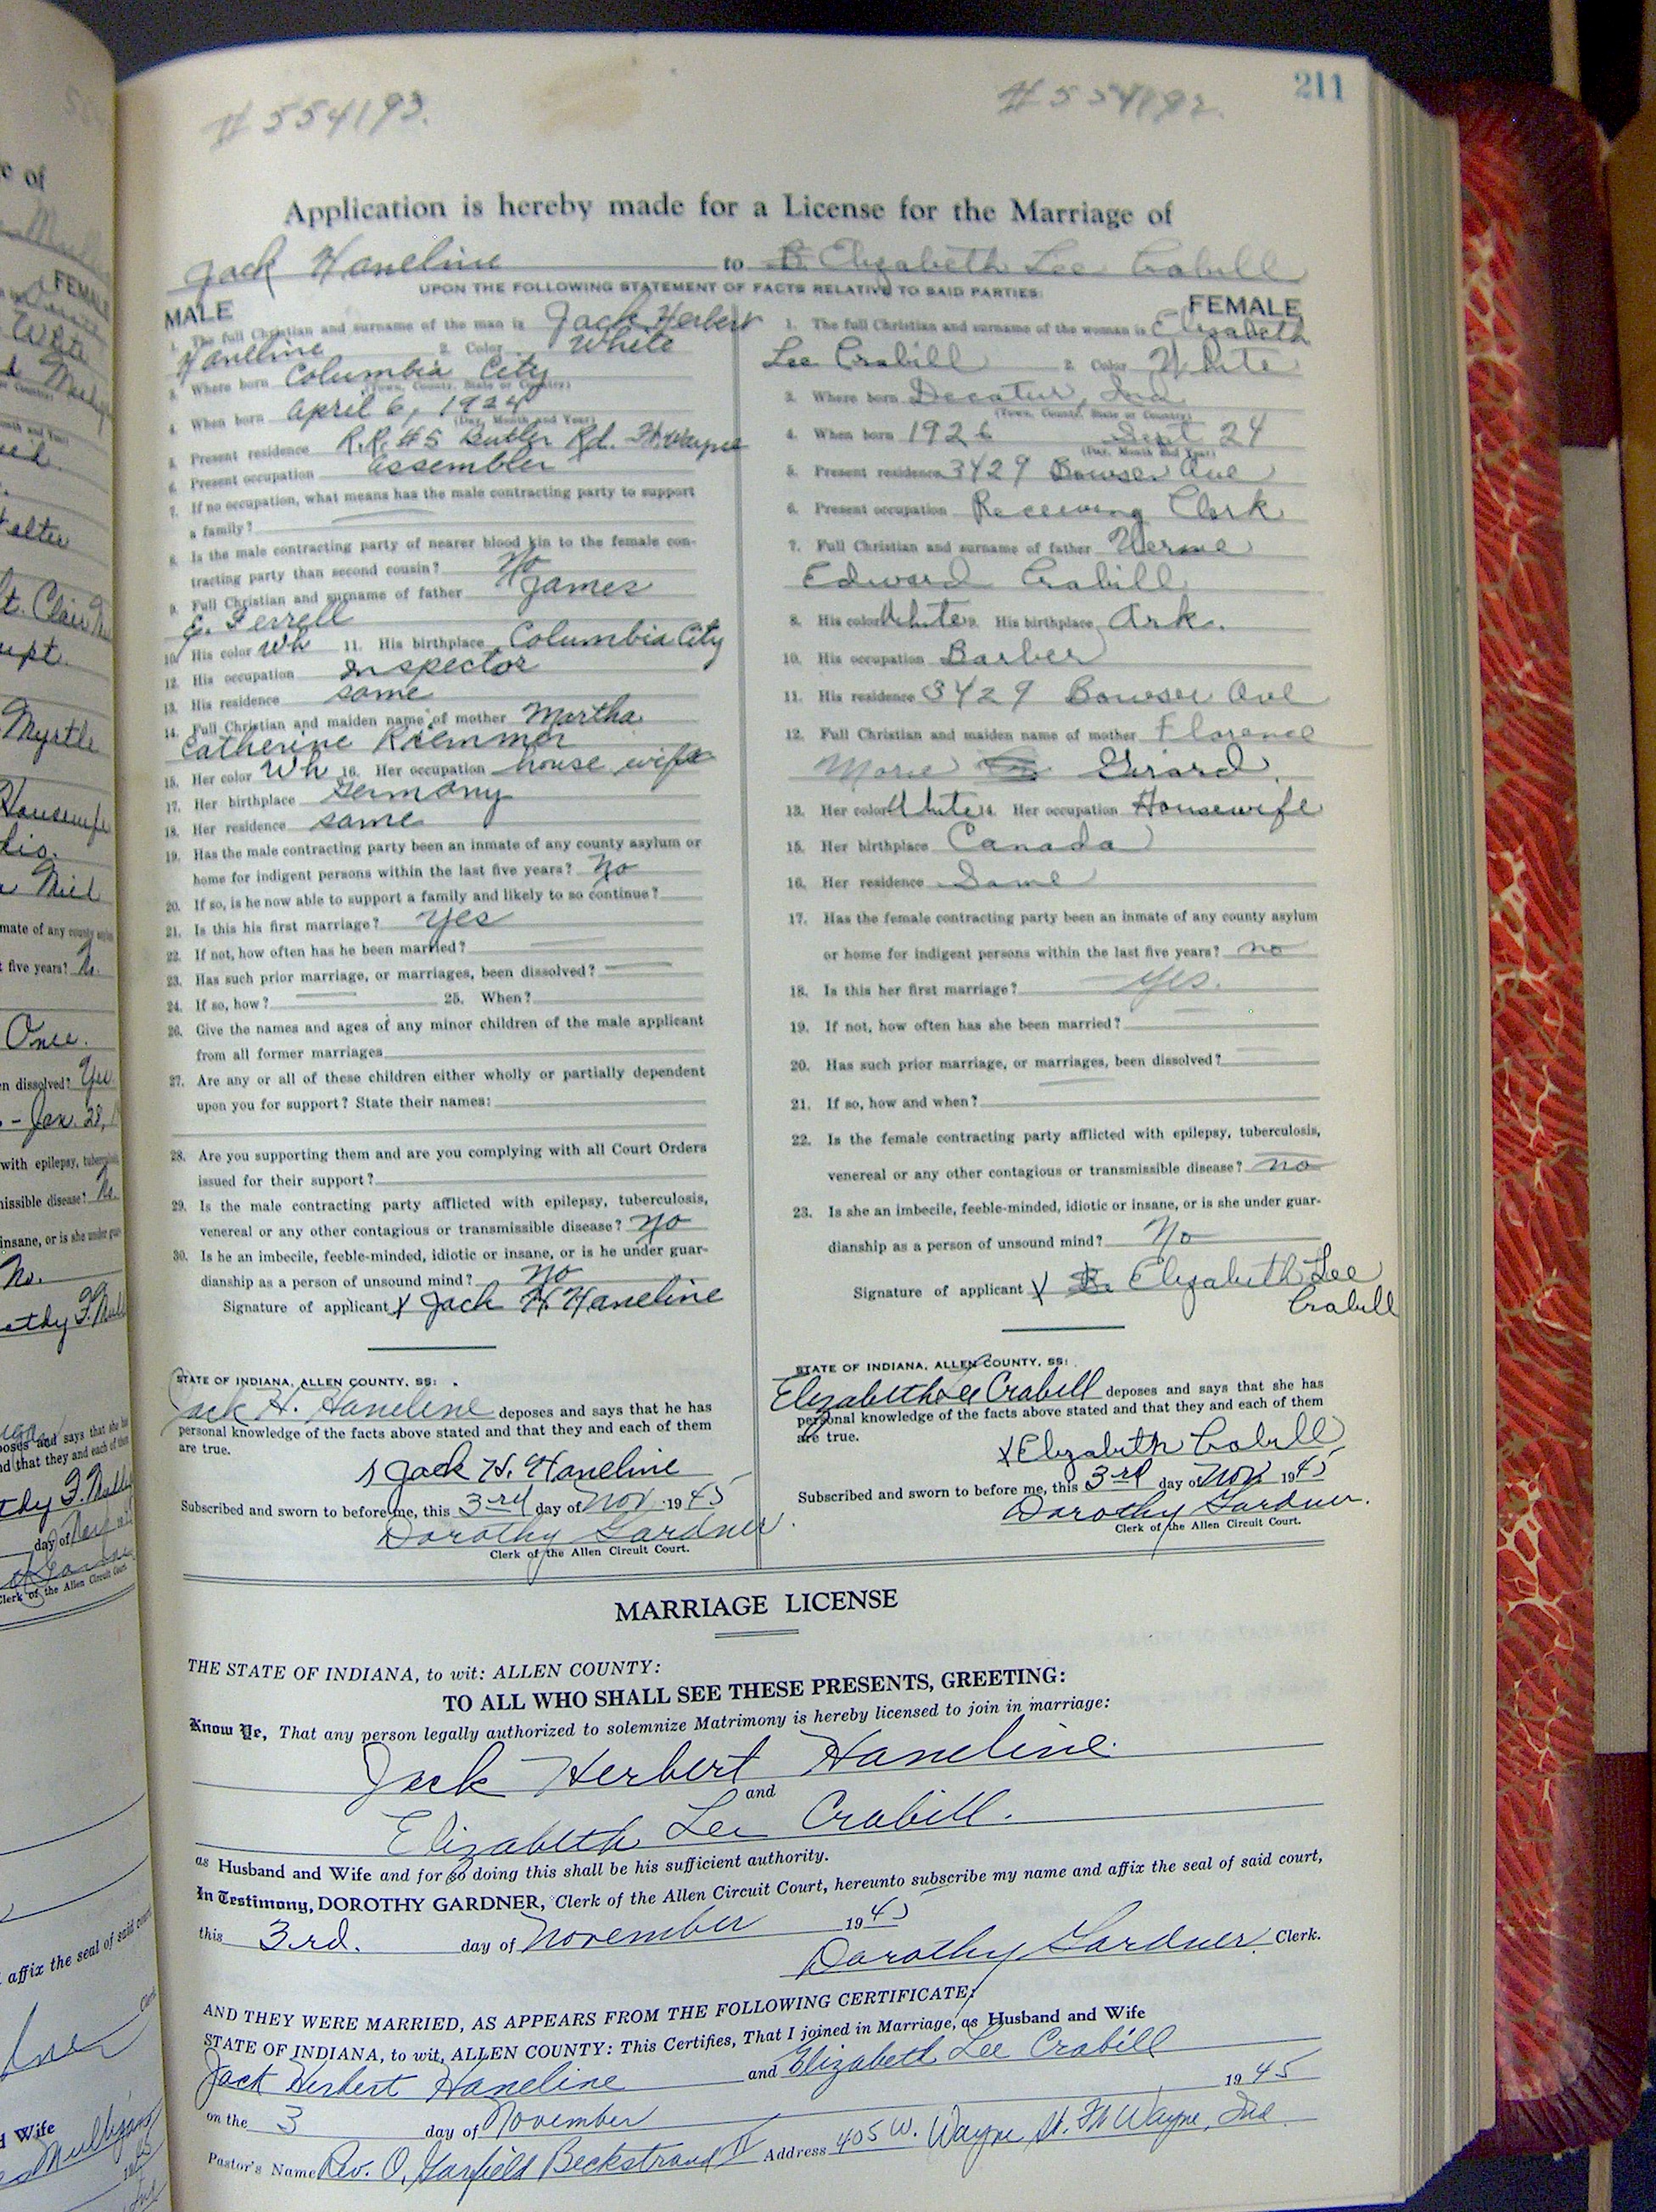 211
#554193.
#554192.
Application is hereby made for a License for the Marriage of
Jack Haneline to Elizabeth Lee Crabill
UPON THE FOLLOWING STATEMENT OF FACTS RELATIVE TO SAID PARTIES:
MALE
1. The full Christian and surname of the man is Jack Herbert
Haneline 2. Color White
3. Where born Columbia City
(Town, County, State or Country)
4. When born April 6, 1924
(Day, Month and Year)
5. Present residence R.R. #5 Butler Rd. Ft. Wayne
6. Present occupation assembler
7. If no occupation, what means has the male contracting party to support
a family?
8. Is the male contracting party of nearer blood kin to the female con-
tracting party than second cousin? No
9. Full Christian and surname of father James
E. Ferrell
10. His color Wh 11. His birthplace Columbia City
12. His occupation Inspector
13. His residence same
14. Full Christian and maiden name of mother Martha
Catherine Kremmer
15. Her color Wh 16. Her occupation house wife
17. Her birthplace Germany
18. Her residence same
19. Has the male contracting party been an inmate of any county asylum or
home for indigent persons within the last five years? No
20. If so, is he now able to support a family and likely to so continue?
21. Is this his first marriage? yes
22. If not, how often has he been married?
23. Has such prior marriage, or marriages, been dissolved?
24. If so, how? 25. When?
26. Give the names and ages of any minor children of the male applicant
from all former marriages
27. Are any or all of these children either wholly or partially dependent
upon you for support? State their names:
28. Are you supporting them and are you complying with all Court Orders
issued for their support?
29. Is the male contracting party afflicted with epilepsy, tuberculosis,
venereal or any other contagious or transmissible disease? no
30. Is he an imbecile, feeble-minded, idiotic or insane, or is he under guar-
dianship as a person of unsound mind? no
Signature of applicant X Jack H. Haneline
STATE OF INDIANA, ALLEN COUNTY, SS:
Jack H. Haneline deposes and says that he has
personal knowledge of the facts above stated and that they and each of them
are true.
Jack H. Haneline
Subscribed and sworn to before me, this 3rd day of Nov. 1945
Dorothy Gardner
Clerk of the Allen Circuit Court.
FEMALE
1. The full Christian and surname of the woman is Elizabeth
Lee Crabill 2. Color White
3. Where born Decatur, Ind
(Town, County, State or Country)
4. When born 1926 Sept 24
(Day, Month and Year)
5. Present residence 3429 Bowser Ave
6. Present occupation Receiving Clerk
7. Full Christian and surname of father Verne
Edward Crabill
8. His color White 9. His birthplace Ark.
10. His occupation Barber
11. His residence 3429 Bowser Ave
12. Full Christian and maiden name of mother Florence
Marie Girard
13. Her color White 14. Her occupation Housewife
15. Her birthplace Canada
16. Her residence Same
17. Has the female contracting party been an inmate of any county asylum
or home for indigent persons within the last five years? no
18. Is this her first marriage? yes.
19. If not, how often has she been married?
20. Has such prior marriage, or marriages, been dissolved?
21. If so, how and when?
22. Is the female contracting party afflicted with epilepsy, tuberculosis,
venereal or any other contagious or transmissible disease? no
23. Is she an imbecile, feeble-minded, idiotic or insane, or is she under guar-
dianship as a person of unsound mind? No
Signature of applicant X Elizabeth Lee
Crabill
STATE OF INDIANA, ALLEN COUNTY, SS:
Elizabeth Lee Crabill deposes and says that she has
personal knowledge of the facts above stated and that they and each of them
are true.
X Elizabeth Crabill
Subscribed and sworn to before me, this 3rd day of Nov 1945
Dorothy Gardner.
Clerk of the Allen Circuit Court.
MARRIAGE LICENSE
THE STATE OF INDIANA, to wit: ALLEN COUNTY:
TO ALL WHO SHALL SEE THESE PRESENTS, GREETING:
Know Ye, That any person legally authorized to solemnize Matrimony is hereby licensed to join in marriage:
Jack Herbert Haneline
and
Elizabeth Lee Crabill.
as Husband and Wife and for so doing this shall be his sufficient authority.
In Testimony, DOROTHY GARDNER, Clerk of the Allen Circuit Court, hereunto subscribe my name and affix the seal of said court,
this 3rd. day of November 1945
Dorothy Gardner Clerk.
AND THEY WERE MARRIED, AS APPEARS FROM THE FOLLOWING CERTIFICATE:
STATE OF INDIANA, to wit, ALLEN COUNTY: This Certifies, That I joined in Marriage, as Husband and Wife
Jack Herbert Haneline and Elizabeth Lee Crabill
on the 3 day of November 1945
Pastor's Name Rev. O. Garfield Beckstrand II Address 405 W. Wayne St. Ft Wayne, Ind